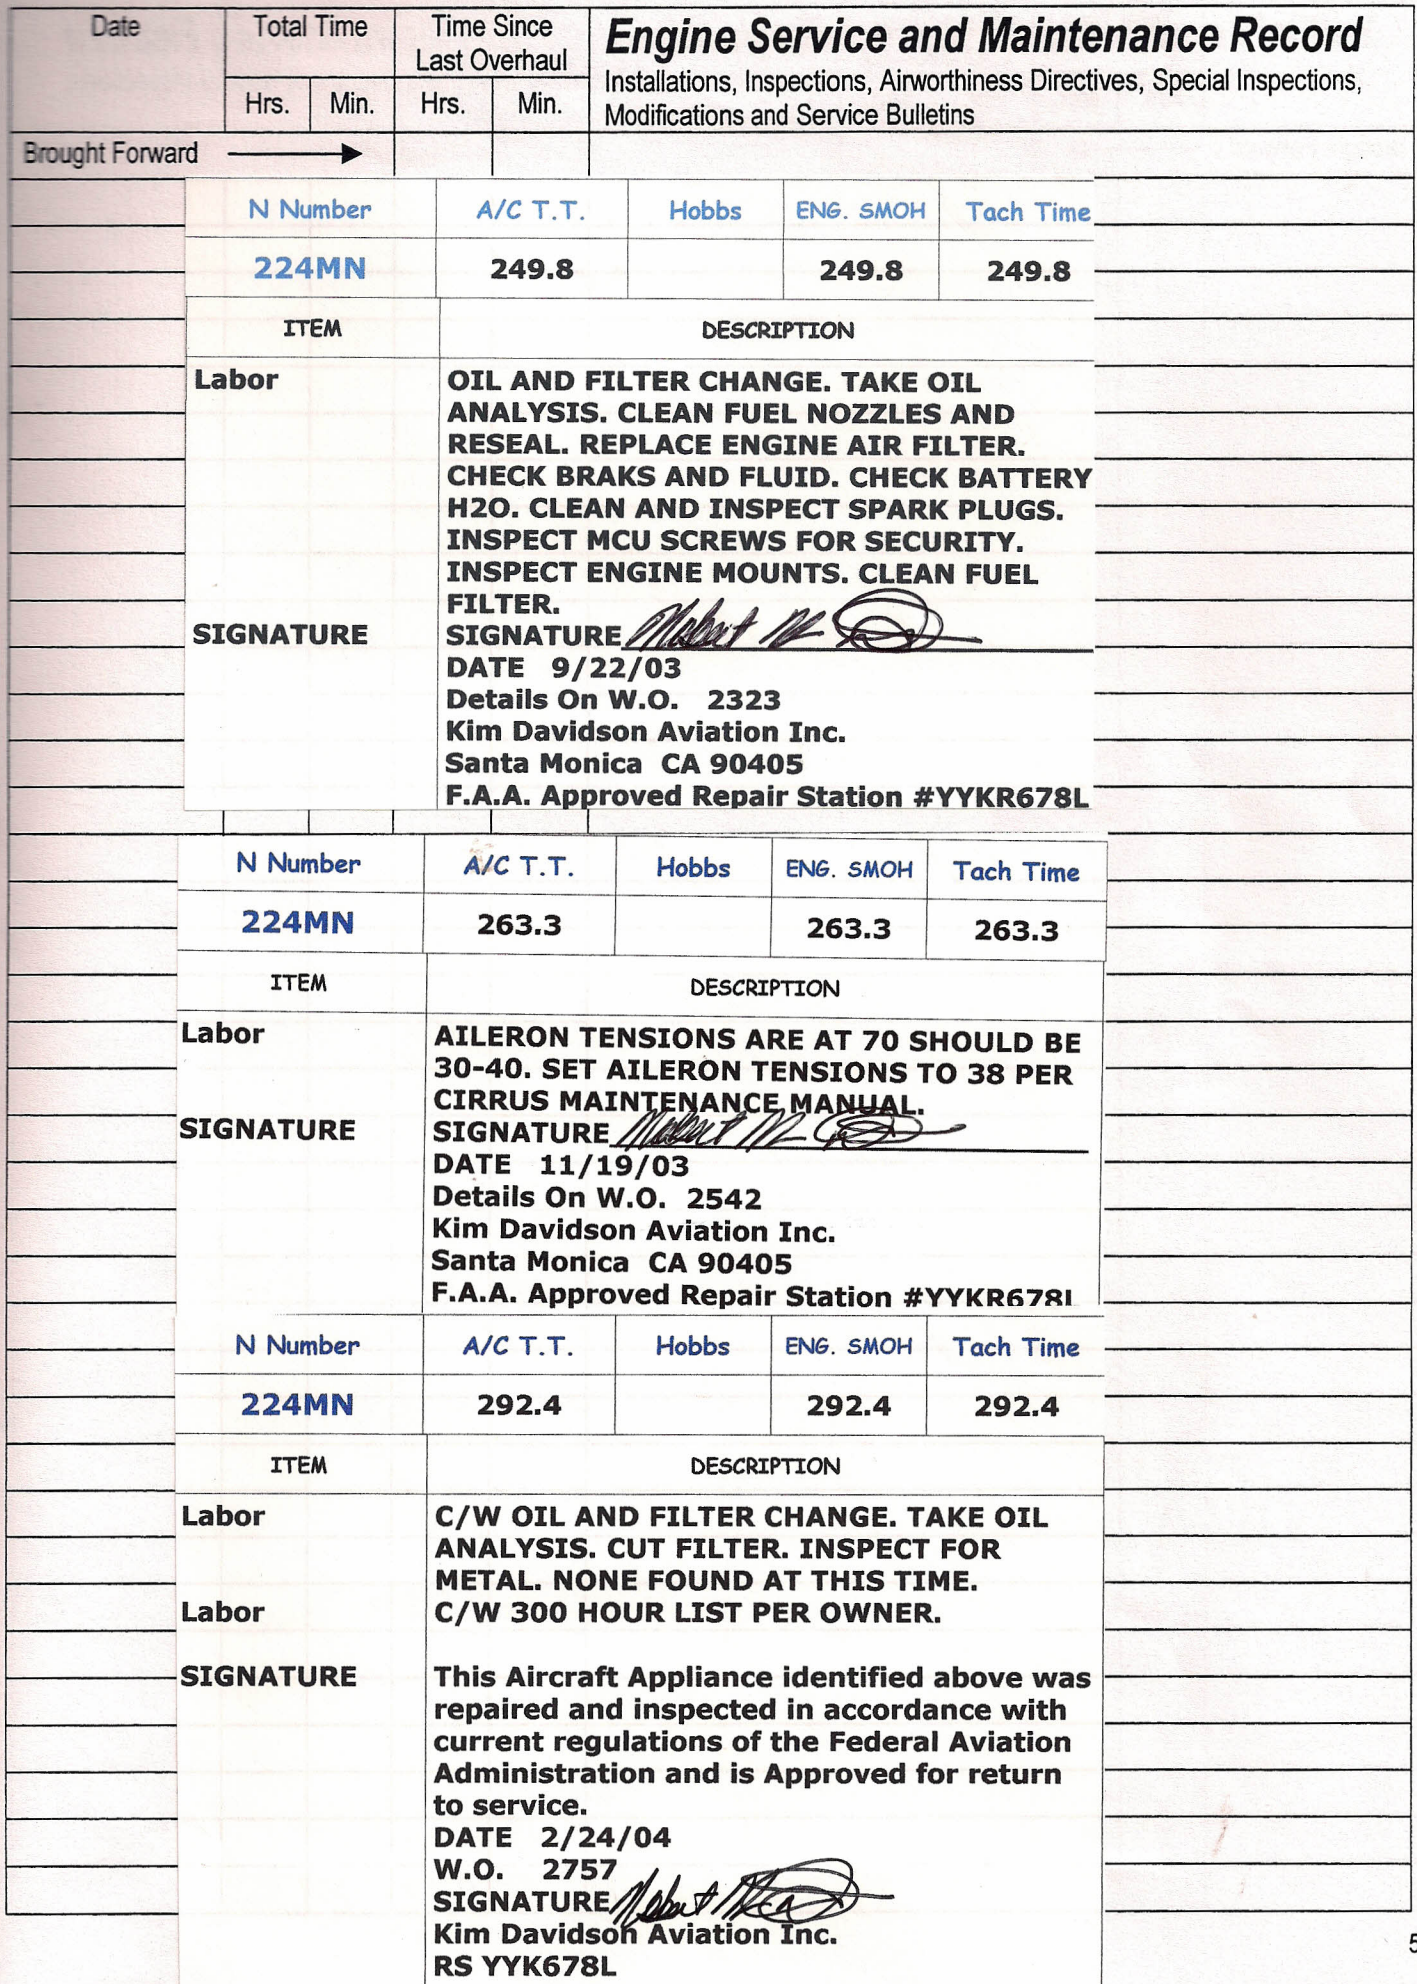 Date Total Time Time Since Last Overhaul Engine Service and Maintenance Record
Installations, Inspections, Airworthiness Directives, Special Inspections,
Hrs. Min. Hrs. Min. Modifications and Service Bulletins
Brought Forward
N Number A/C T.T. Hobbs ENG. SMOH Tach Time
224MN 249.8 249.8 249.8
ITEM DESCRIPTION
Labor OIL AND FILTER CHANGE. TAKE OIL
ANALYSIS. CLEAN FUEL NOZZLES AND
RESEAL. REPLACE ENGINE AIR FILTER.
CHECK BRAKS AND FLUID. CHECK BATTERY
H2O. CLEAN AND INSPECT SPARK PLUGS.
INSPECT MCU SCREWS FOR SECURITY.
INSPECT ENGINE MOUNTS. CLEAN FUEL
FILTER.
SIGNATURE SIGNATURE
DATE 9/22/03
Details On W.O. 2323
Kim Davidson Aviation Inc.
Santa Monica CA 90405
F.A.A. Approved Repair Station #YYKR678L
N Number A/C T.T. Hobbs ENG. SMOH Tach Time
224MN 263.3 263.3 263.3
ITEM DESCRIPTION
Labor AILERON TENSIONS ARE AT 70 SHOULD BE
30-40. SET AILERON TENSIONS TO 38 PER
CIRRUS MAINTENANCE MANUAL.
SIGNATURE SIGNATURE
DATE 11/19/03
Details On W.O. 2542
Kim Davidson Aviation Inc.
Santa Monica CA 90405
F.A.A. Approved Repair Station #YYKR678L
N Number A/C T.T. Hobbs ENG. SMOH Tach Time
224MN 292.4 292.4 292.4
ITEM DESCRIPTION
Labor C/W OIL AND FILTER CHANGE. TAKE OIL
ANALYSIS. CUT FILTER. INSPECT FOR
METAL. NONE FOUND AT THIS TIME.
Labor C/W 300 HOUR LIST PER OWNER.
SIGNATURE This Aircraft Appliance identified above was
repaired and inspected in accordance with
current regulations of the Federal Aviation
Administration and is Approved for return
to service.
DATE 2/24/04
W.O. 2757
SIGNATURE
Kim Davidson Aviation Inc.
RS YYK678L
5